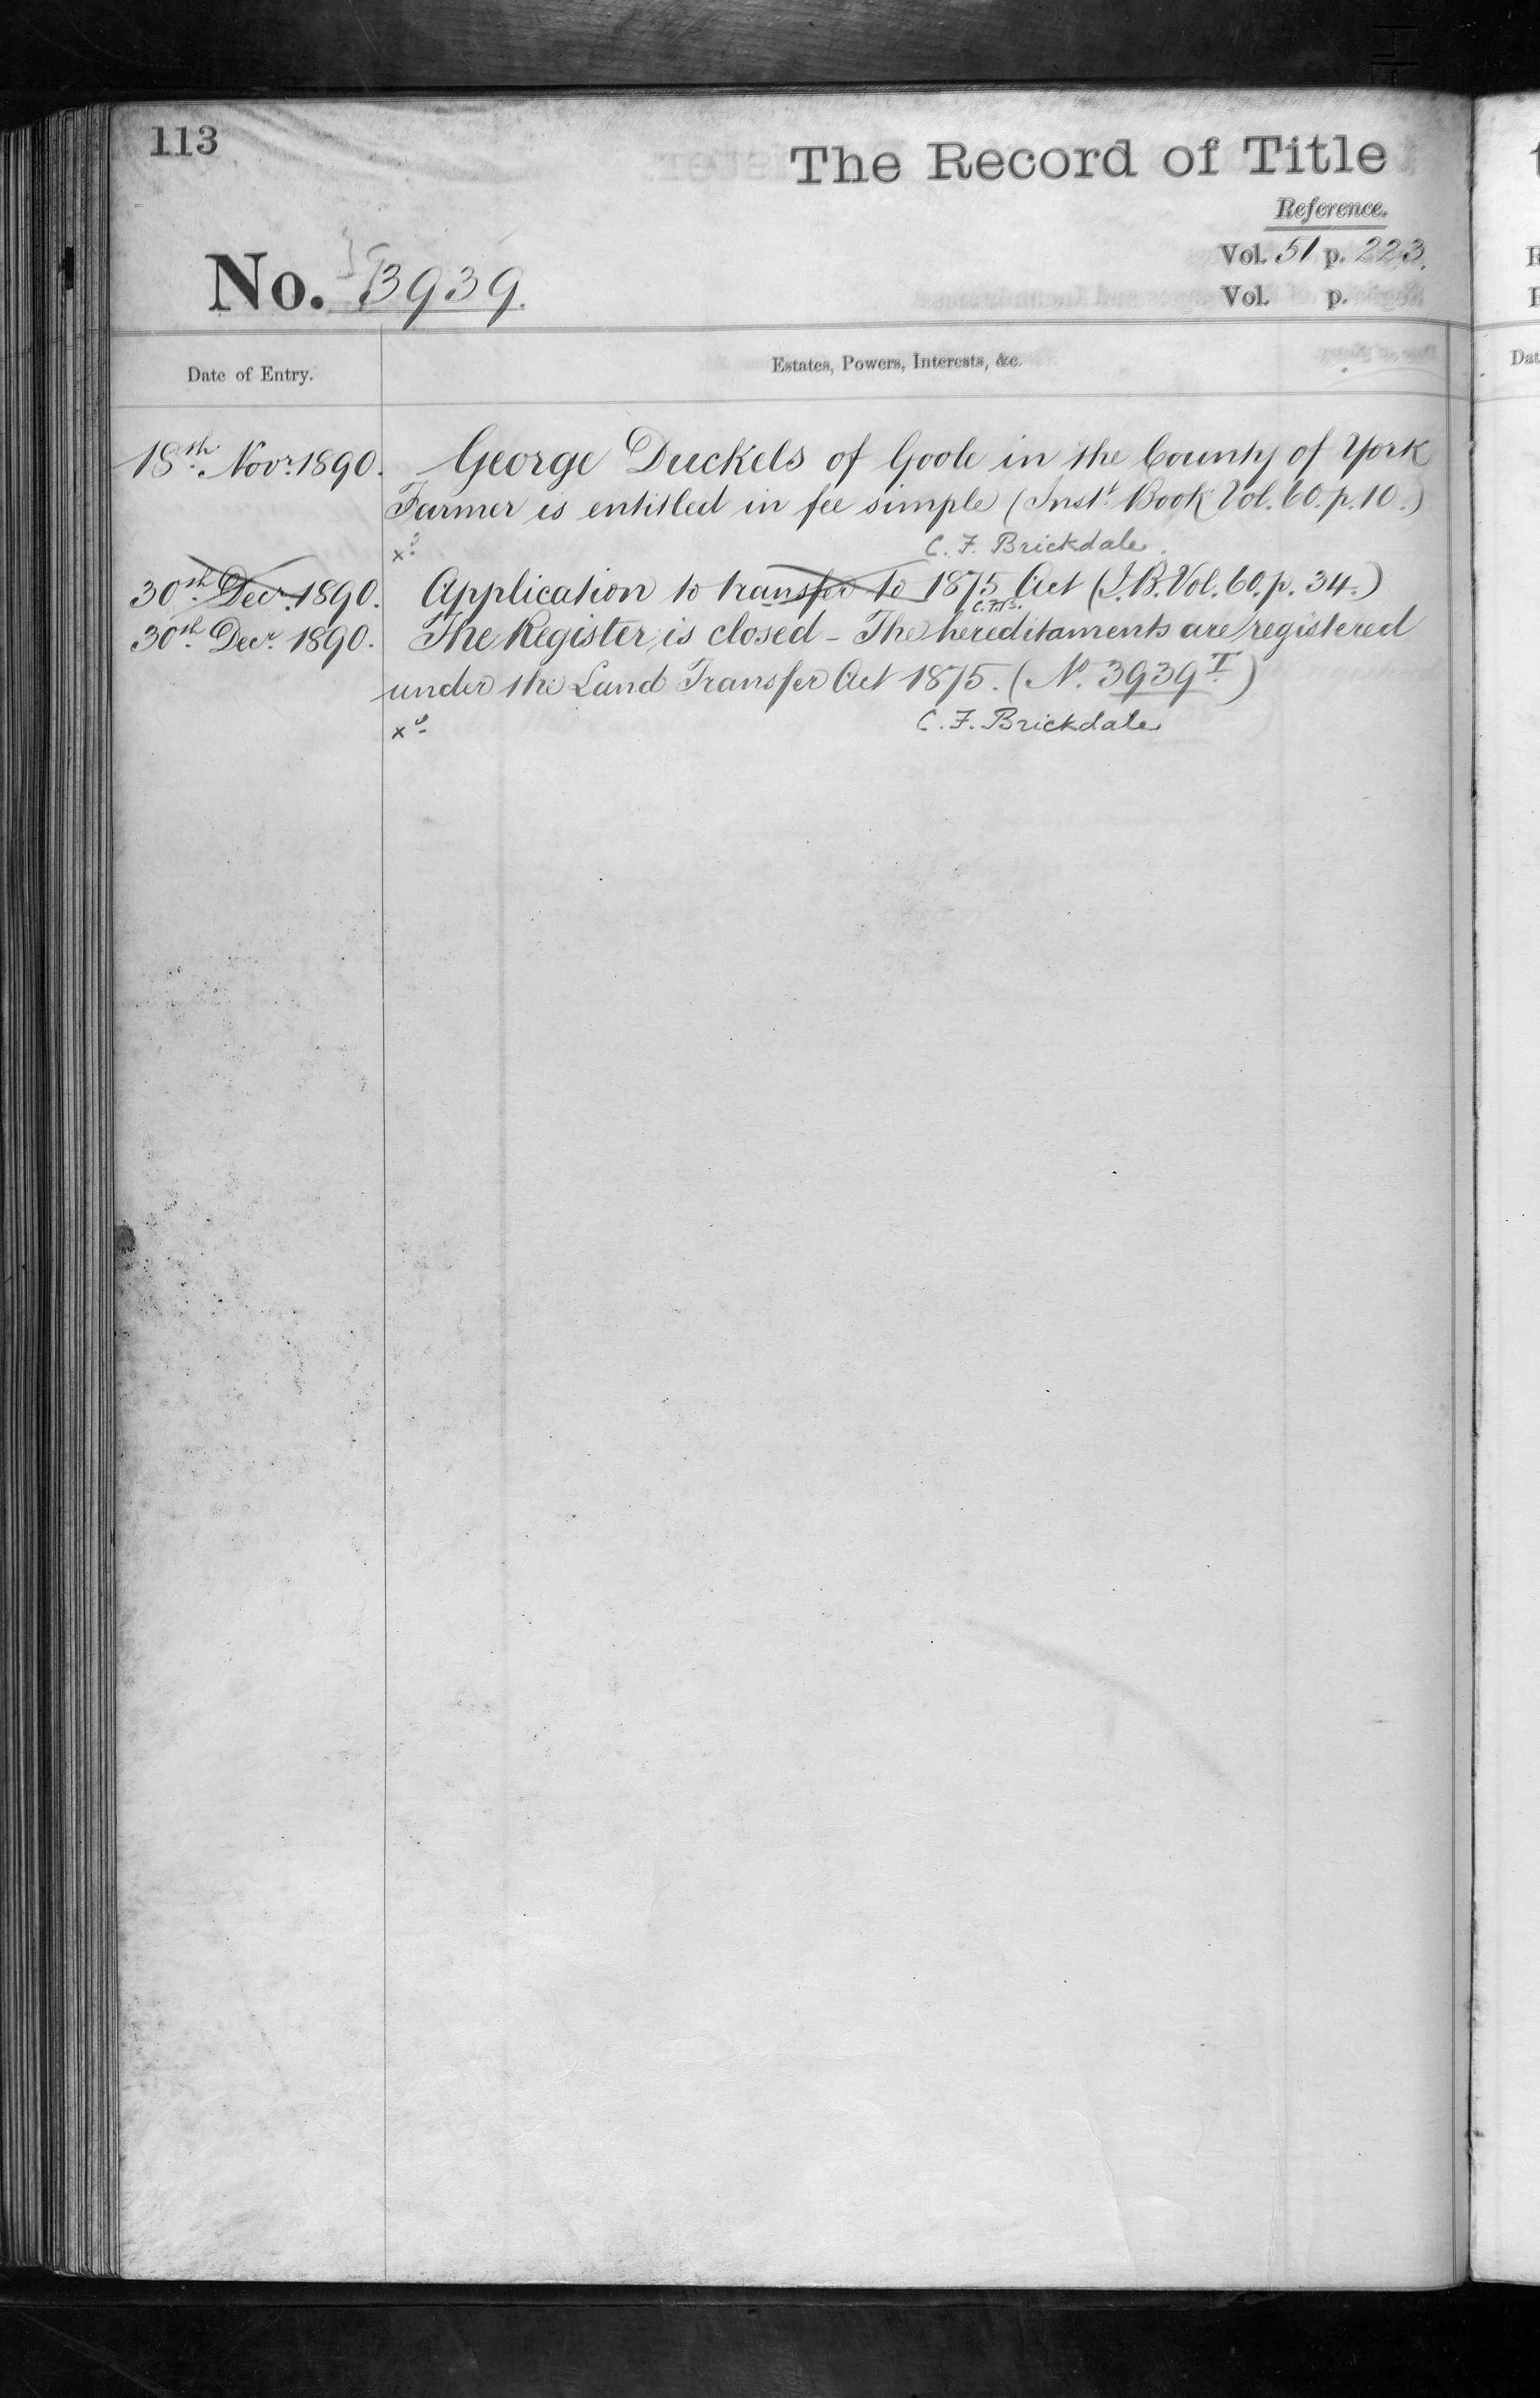 113
The Record of Title
Reference.
Vol. 51 p. 223.
No. 3939.
Vol. p.
Date of Entry.
Estates, Powers, Interests, &c.
18th. Novr. 1890. George Duckels of Goole in the County of York
Farmer is entitled in fee simple (Inst. Book Vol. 60. p. 10.)
C. F. Brickdale.
30th Decr. 1890. Application to transfer to 1875 Act (I.B. Vol. 60. p. 34.)
C.F.B.
30th. Decr. 1890. The Register is closed - The hereditaments are registered
under the Land Transfer Act 1875. (No. 3939 I.)
C. F. Brickdale